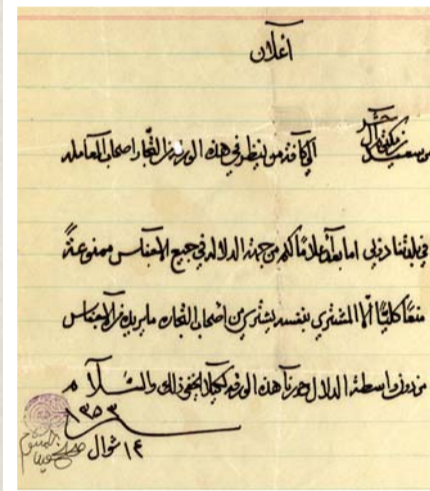 أعلان
من سعيد بن مكتوم آل حشر الى كافة من ينظر في هذه الورقة من التجار اصحاب المعامله
في بلدتنا دبي اما بعد أعلاماً لكم من جهة الدلاله في جميع الاجناس ممنوعةً
منعاً كلياً الا المشتري بنفسه يشتري من اصحاب التجاره ما يريده من الاجناس
من دون واسطة الدلال حررنا هذه الورقه لكيلا يخفى ذلك والسلام
١٤ شوال ١٣٥٣